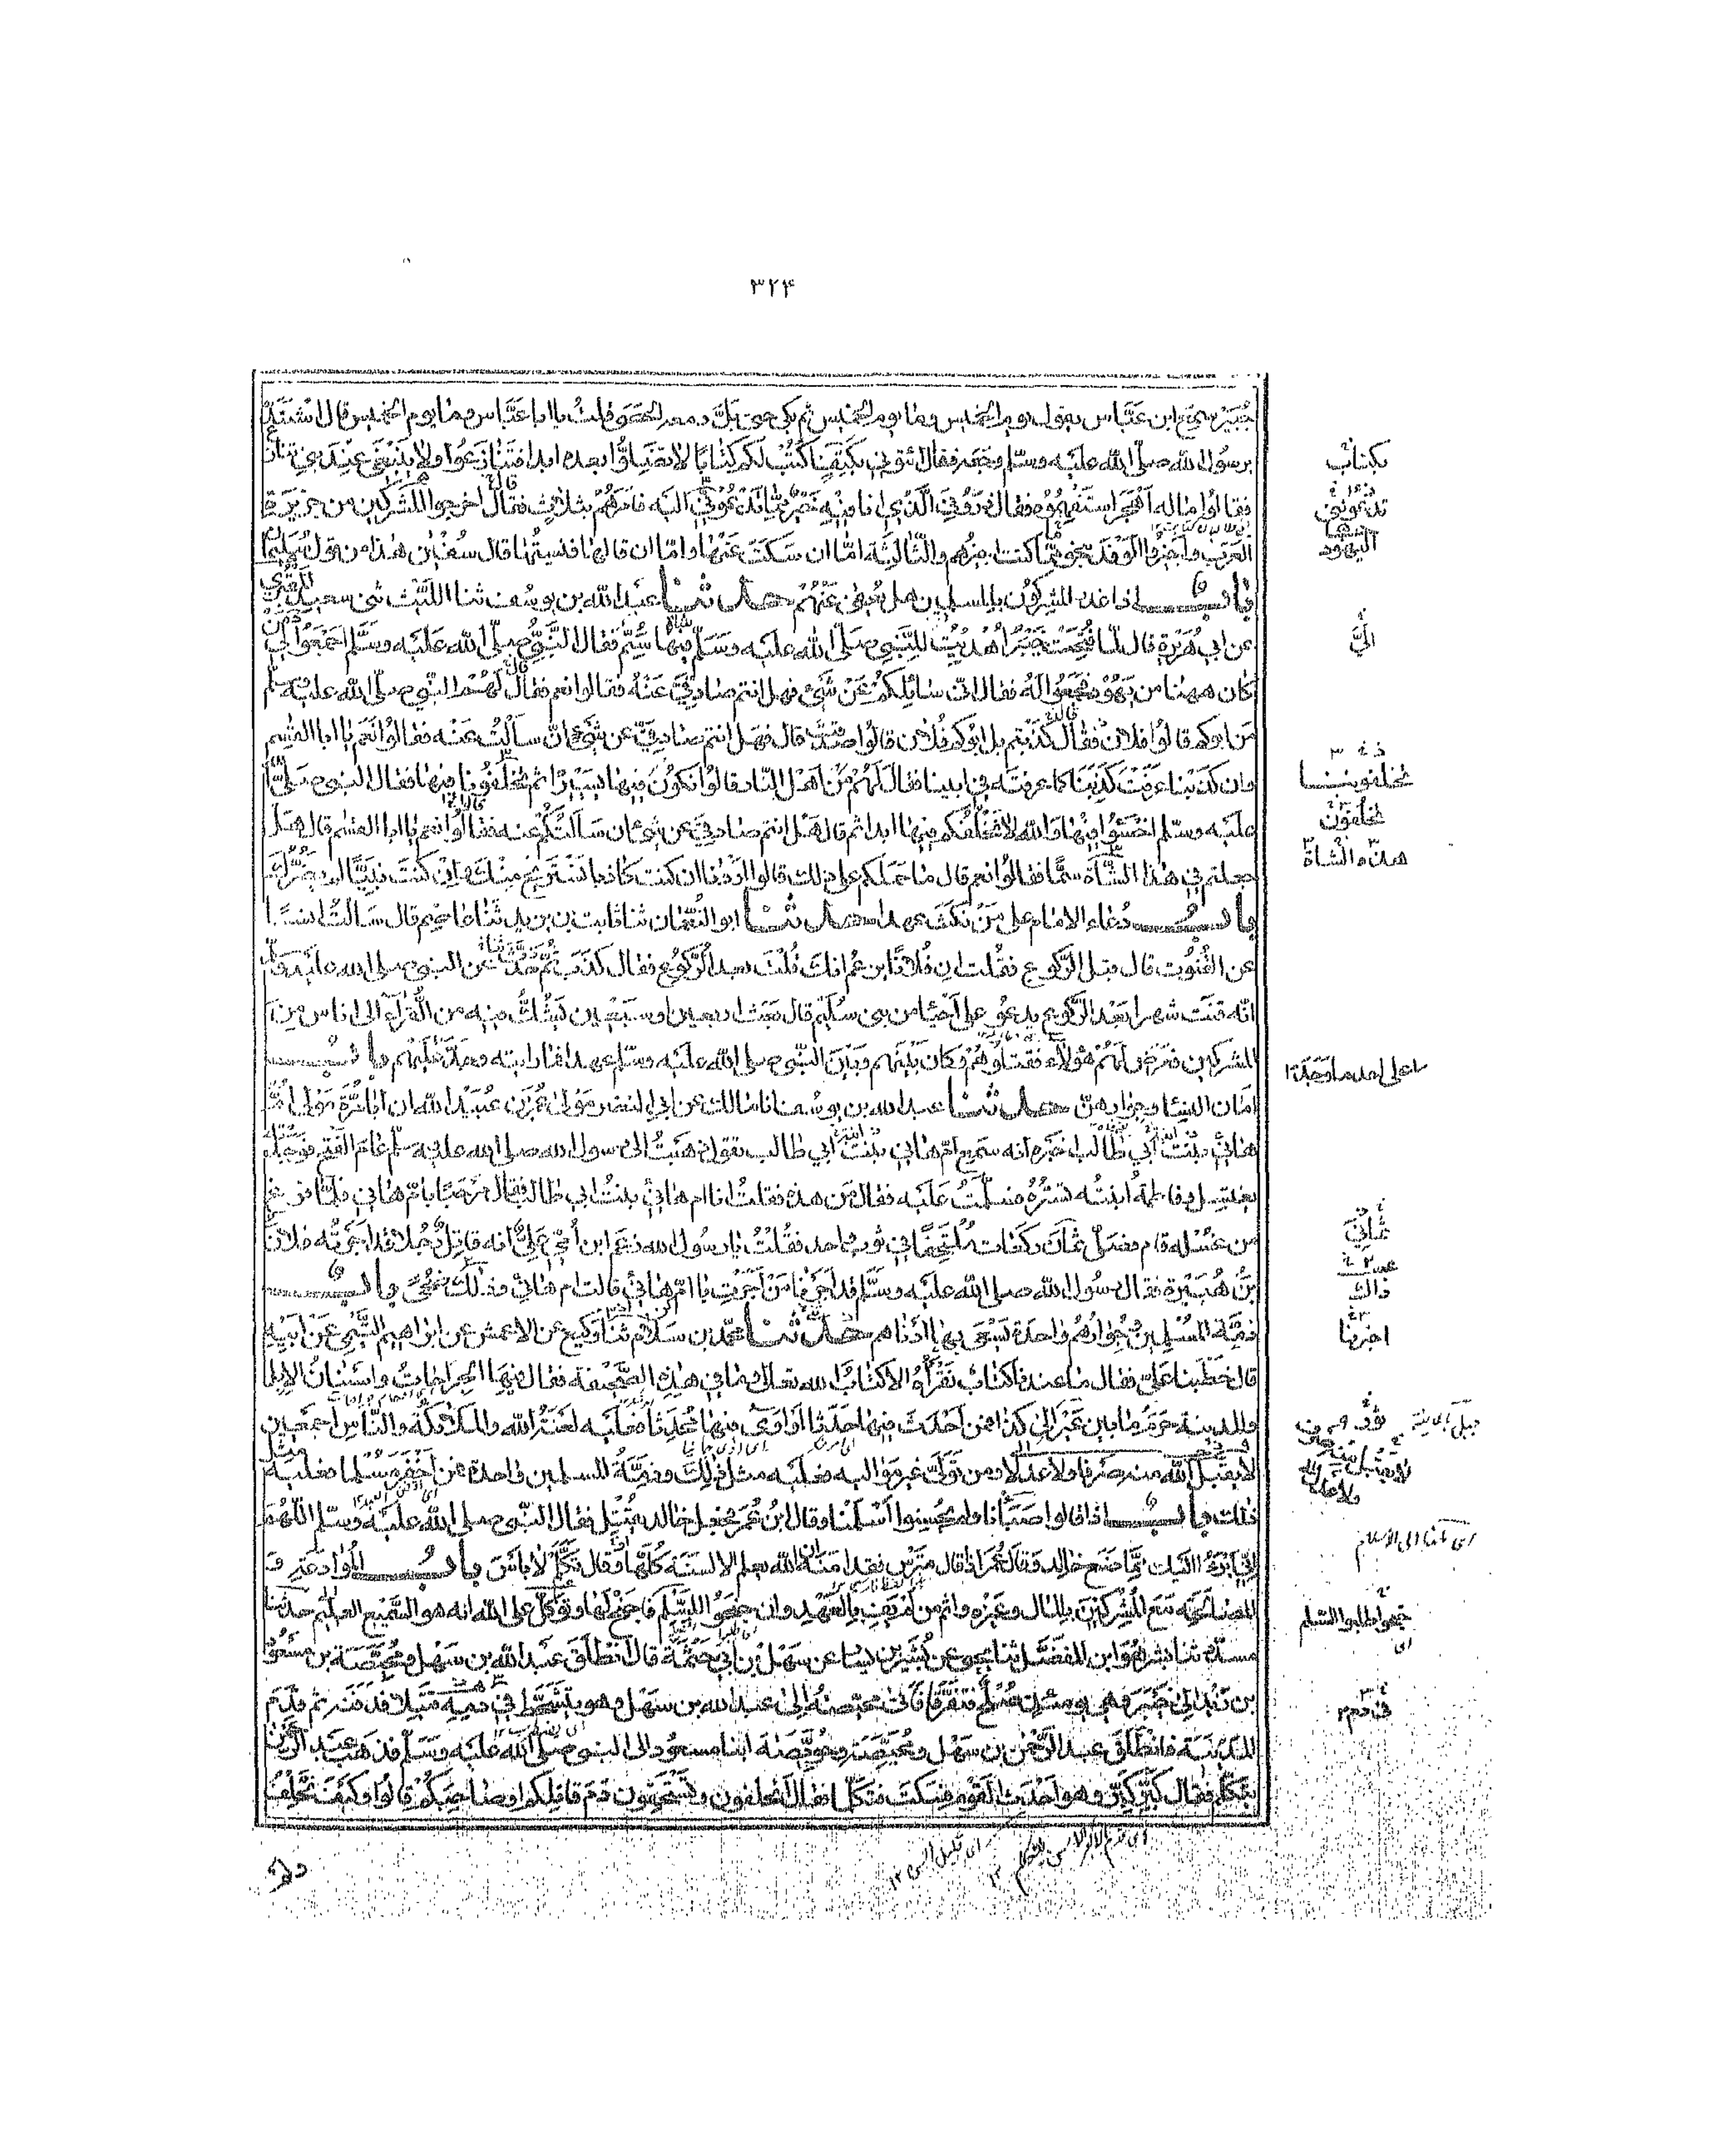 ٣٢٤
جُبَيْر سمع ابن عَبَّاس يقول يوم الخميس وما يوم الخميس ثم بكى حتى بَلَّ دمعه الحصى قلتُ يا ابا عَبَّاس وما يوم الخميس قال اشتَدَّ
برسول الله صلى الله عليه وسلم وجعه فقال ائتوني بكتف اكتُبْ لكم كتابًا لا تضلوا بعده ابدا فتنازعوا ولا ينبغي عند نبي تنازع
فقالوا ما له اَهَجَر استفهموه فقال ذروني الذي انا فيه خير مما تدعوني اليه فامرهم بثلاث فقال اخرجوا المشركين من جزيرة
العرب واجيزوا الوفد بنحو مما كنت اجيزهم والثالثة اما ان سكت عنها واما ان قالها فنسيتها قال سفين هذا من قول سليمان
باب اذا غدر المشركون بالمسلمين هل يعفى عنهم حدثنا عبد الله بن يوسف ثنا الليث ثنى سعيد المقبري
عن ابي هُرَيْرة قال لما فتحت خيبر اُهديت للنبي صلى الله عليه وسلم شاة فيها سُمّ فقال النبي صلى الله عليه وسلم اجمعوا لي من
كان ههنا من يهود فجمعوا له فقال اني سائلكم عن شئ فهل انتم صادقيّ عنه فقالوا نعم فقال لهم النبي صلى الله عليه وسلم
من ابوكم قالوا فلان فقال كذبتم بل ابوكم فلان قالوا صدقت قال فهل انتم صادقيّ عن شئ ان سألتُ عنه فقالوا نعم يا ابا القسم
وان كذبنا عرفت كذبنا كما عرفته في ابينا فقال لهم من اهل النار قالوا نكون فيها يسيرا ثم تخلفونا فيها فقال النبي صلى الله
عليه وسلم اخسئوا فيها والله لا نخلفكم فيها ابدا ثم قال هل انتم صادقيّ عن شئ ان سألتكم عنه فقالوا نعم يا ابا القسم قال هل
جعلتم في هذا الشاة سمًّا فقالوا نعم قال ما حملكم على ذلك قالوا اردنا ان كنت كاذبا نستريح منك وان كنت نبيًّا لم يضرك
باب دُعاء الامام على من نكث عهدا حدثنا ابو النعمان ثنا ثابت بن يزيد ثنا عاصم قال سألتُ انسًا
عن القُنُوت قال قبل الركوع فقلت ان فلانًا يزعم انك قلت بعد الركوع فقال كذب ثم حدثنا عن النبي صلى الله عليه وسلم
انه قنت شهرا بعد الركوع يدعو على احياء من بني سُلَيم قال بعث اربعين او سبعين يشك فيه من القُرّاء الى اناس من
المشركين فعرض لهم هؤلاء فقتلوهم وكان بينهم وبين النبي صلى الله عليه وسلم عهد فما رايته وجد على احد ما وجد عليهم باب
امان النساء وجوارهن حدثنا عبد الله بن يوسف انا مالك عن ابي النضر مولى عمر بن عبيد الله ان ابا مُرَّة مولى ام
هانئ بنت ابي طالب اخبره انه سمع ام هانئ بنت ابي طالب تقول ذهبتُ الى رسول الله صلى الله عليه وسلم عام الفتح فوجدته
يغتسل وفاطمة ابنته تستره فسلمت عليه فقال من هذه فقلت انا ام هانئ بنت ابي طالب فقال مرحبا بام هانئ فلما فرغ
من غسله قام فصلى ثمان ركعات ملتحفًا في ثوب واحد فقلت يا رسول الله زعم ابن امي عليّ انه قاتل رجلا قد اجرته فلان
بن هُبَيْرة فقال رسول الله صلى الله عليه وسلم قد اجرنا من اجرت يا ام هانئ قالت ام هانئ وذلك ضحًى باب
ذمة المسلمين وجوارهم واحدة يسعى بها ادناهم حدثنا محمد بن سلام ثنا وكيع عن الاعمش عن ابراهيم التيمي عن ابيه
قال خطبنا عليّ فقال ما عندنا كتاب نقرأه الا كتاب الله تعالى وما في هذه الصحيفة فقال فيها الجراحات واسنان الابل
والمدينة حرم ما بين عير الى كذا فمن احدث فيها حدثا او اوى فيها محدثا فعليه لعنة الله والملائكة والناس اجمعين
لا يقبل الله منه صرفا ولا عدلا ومن تولى غير مواليه فعليه مثل ذلك وذمة المسلمين واحدة فمن اخفر مسلما فعليه مثل
ذلك باب اذا قالوا صبأنا ولم يحسنوا اسلمنا وقال ابن عمر فجعل خالد يقتل فقال النبي صلى الله عليه وسلم اللهم
اني ابرء اليك مما صنع خالد وقال عمر اذا قال مترس فقد امنه ان الله يعلم الالسنة كلها وقال تكلم لا باس باب الموادعة و
المصالحة مع المشركين بالمال وغيره واثم من لم يف بالعهد وان جنحوا للسلم فاجنح لها وتوكل على الله انه هو السميع العليم حدثنا
مسدد ثنا بشر هو ابن المفضل ثنا يحيى عن بُشير بن يسار عن سهل بن ابي حثمة قال انطلق عبد الله بن سهل ومحيصة بن مسعود
بن زيد الى خيبر وهي يومئذ صلح فتفرقا فاتى محيصة الى عبد الله بن سهل وهو يتشحط في دمه قتيلا فدفنه ثم قدم
المدينة فانطلق عبد الرحمن بن سهل ومحيصة وحويصة ابنا مسعود الى النبي صلى الله عليه وسلم فذهب عبد الرحمن
يتكلم فقال كبر كبر وهو احدث القوم فسكت فتكلما فقال اتحلفون وتستحقون دم قاتلكم او صاحبكم قالوا وكيف نحلف
بكتاب
تدعونني
اليهود
اليّ
تخلفوننا
تخلفون
هذه الشاة
على احد ما وجد
ثماني
ذاك
اجرنا
جنحوا طلبوا السلم
في دم